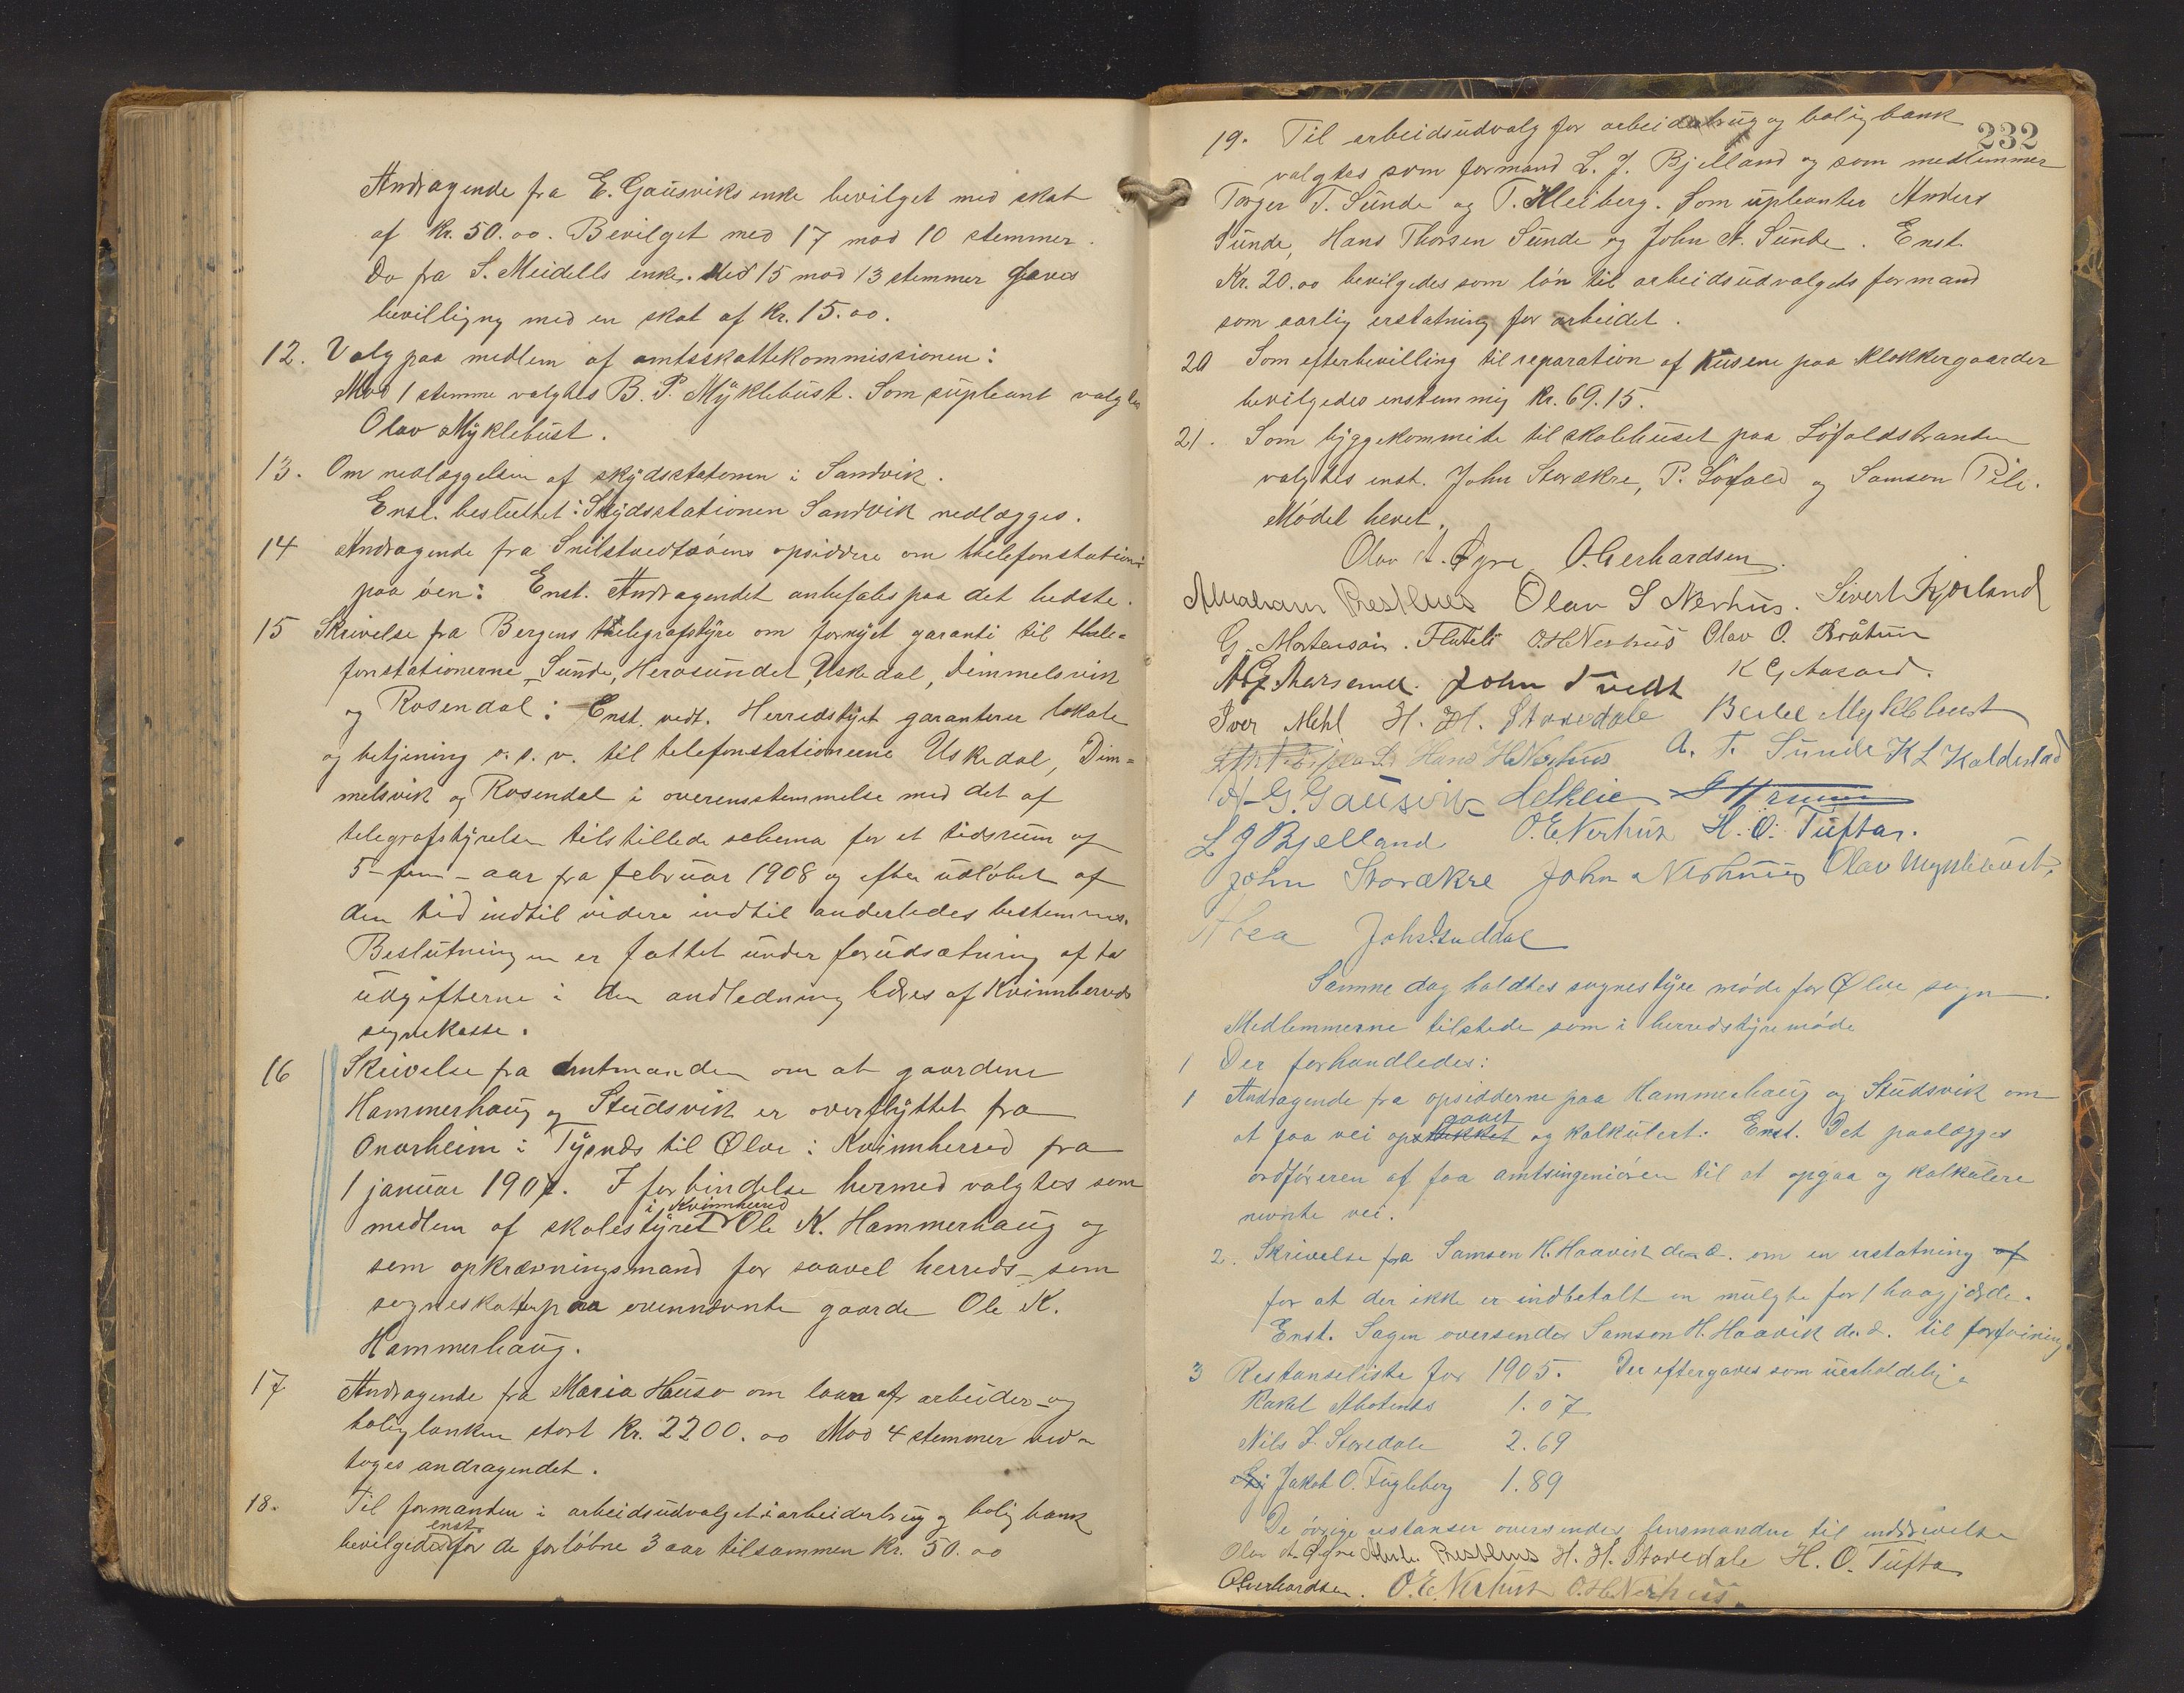 Andragende fra E. Gausviks enke bevilget med skat
af Kr. 50.00. Bevilget med 17 mod 10 stemmer.
Do fra S. Meidells enke. Med 15 mod 13 stemmer gaves
bevilligng med en skat af Kr. 15.00.
12. Valg paa medlem af amtsskattekommissionen:
Mod 1 stemme valgtes B. P. Myklebust. Som supleant valgtes
Olav Myklebust.
13. Om nedlæggelsen af skydsstationen i Sandvik.
Enst. besluttet: Skydsstationen Sandvik nedlægges.
14 Andragende fra Snilstveitøens opsiddere om telefonstation
paa øen: Enst. Andragendet anbefales paa det bedste.
15 Skrivelse fra Bergens telegrafstyre om fornyet garanti til tele-
fonstationerne Sunde, Herøsundet, Uskedal, Dimmelsvik
og Rosendal: Enst. vedt. Herredstyret garanterer lokale
og betjening o. s. v. til telefonstationerne Uskedal, Dim-
melsvik og Rosendal i overensstemmelse med det af
telegrafstyrelsen tilstillede schema for et tidsrum af
5 - fem - aar fra februar 1908 og efter udløbet af
den tid indtil videre indtil anderledes bestemmes.
Beslutningen er fattet under forudsætning af at
udgifterne i den andledning bæres af Kvinnherreds
sognekasse.
16 Skrivelse fra Amtmanden om at gaardene
Hammerhaug og Studsvik er overflyttet fra
Onarheim i Tysnes til Ølve i Kvinnherred fra
1 januar 1907. I forbindelse hermed valgtes som
i Kvinnherred
medlem af skolestyret Ole K. Hammerhaug og
som opkrævningsmand for saavel herreds- som
sogneskat paa ovennævnte gaarde Ole K.
Hammerhaug.
17 Andragende fra Maria Huso om laan af arbeider- og
boligbanken stort Kr. 2200.00 Mod 4 stemmer ved-
toges andragendet.
18. Til formanden i arbeidsudvalget i arbeiderbrug og bolig bank
enst.
bevilgedes for de forløbne 3 aar tilsammen Kr. 50.00
232
19. Til arbeidsudvalg for arbeiderbrug og boligbank
valgtes som formand L. J. Bjelland og som medlemmer
Torger T. Sunde og T. Kleiberg. Som supleanter Anders
Sunde, Hans Thorsen Sunde og John A. Sunde. Enst.
Kr. 20.00 bevilgedes som løn til arbeidsudvalgets formand
som aarlig erstatning for arbeidet.
20 Som efterbevilling til reparation af husene paa Klokkergaarden
bevilgedes enstemmig Kr. 69.15.
21. Som byggekommite til skolehuset paa Løfaldstranden
valgtes enst. John Storækre, P. Løfald og Samson Pile.
Mødet hevet.
Olav A. Øyre O. Gerhardsen.
Abraham Prestnes Olav S Nerhus. Sivert Kjærland
G. Mortensøn. Flatebø O.H.Nerhus Olav O. Bråtun
John Tvedt K G Aasand.
Iver Mehl H. H. Storedale Berle Myklebust
Hans H Nerhus A. T. Sunde K L Kaldestad
A. G. Gausvik
L J Bjelland O. E. Nerhus H. O. Tufta.
John Storækre John Nerhuus Olav Myklebust.
Joh. Guddal
Samme dag holdtes sognestyre møde for Ølve sogn.
Medlemmerne tilstede som i herredstyremøde
1 Der forhandledes:
1 Andragende fra opsidderne paa Hammerhaug og Studsvik om
gaaet
at faa vei opstukket og kalkulert: Enst. Det paalægges
ordføreren at faa amtsingeniøren til at opgaa og kalkulere
nevnte vei.
2. Skrivelse fra Samson H. Haavik d.æ. om en erstatning af
for at der ikke er indbetalt en mulgte for 1 haagjærde.
Enst. Sagen oversendes Samson H. Haavik d.æ. til forføining.
3 Restanseliste for 1905. Der eftergaves som uerholdelig
Rakel Abotsnes 1.07
Nils J. Storedale 2.69
Jakob O. Fugleberg 1.89
De øvrige restanser oversendes lensmanden til inddrivelse
Olav A. Øyre Abrh. Prestnes H. H. Storedale H. O. Tufta
O Gerhardsen. O. E. Nerhus O. H. Nerhus.